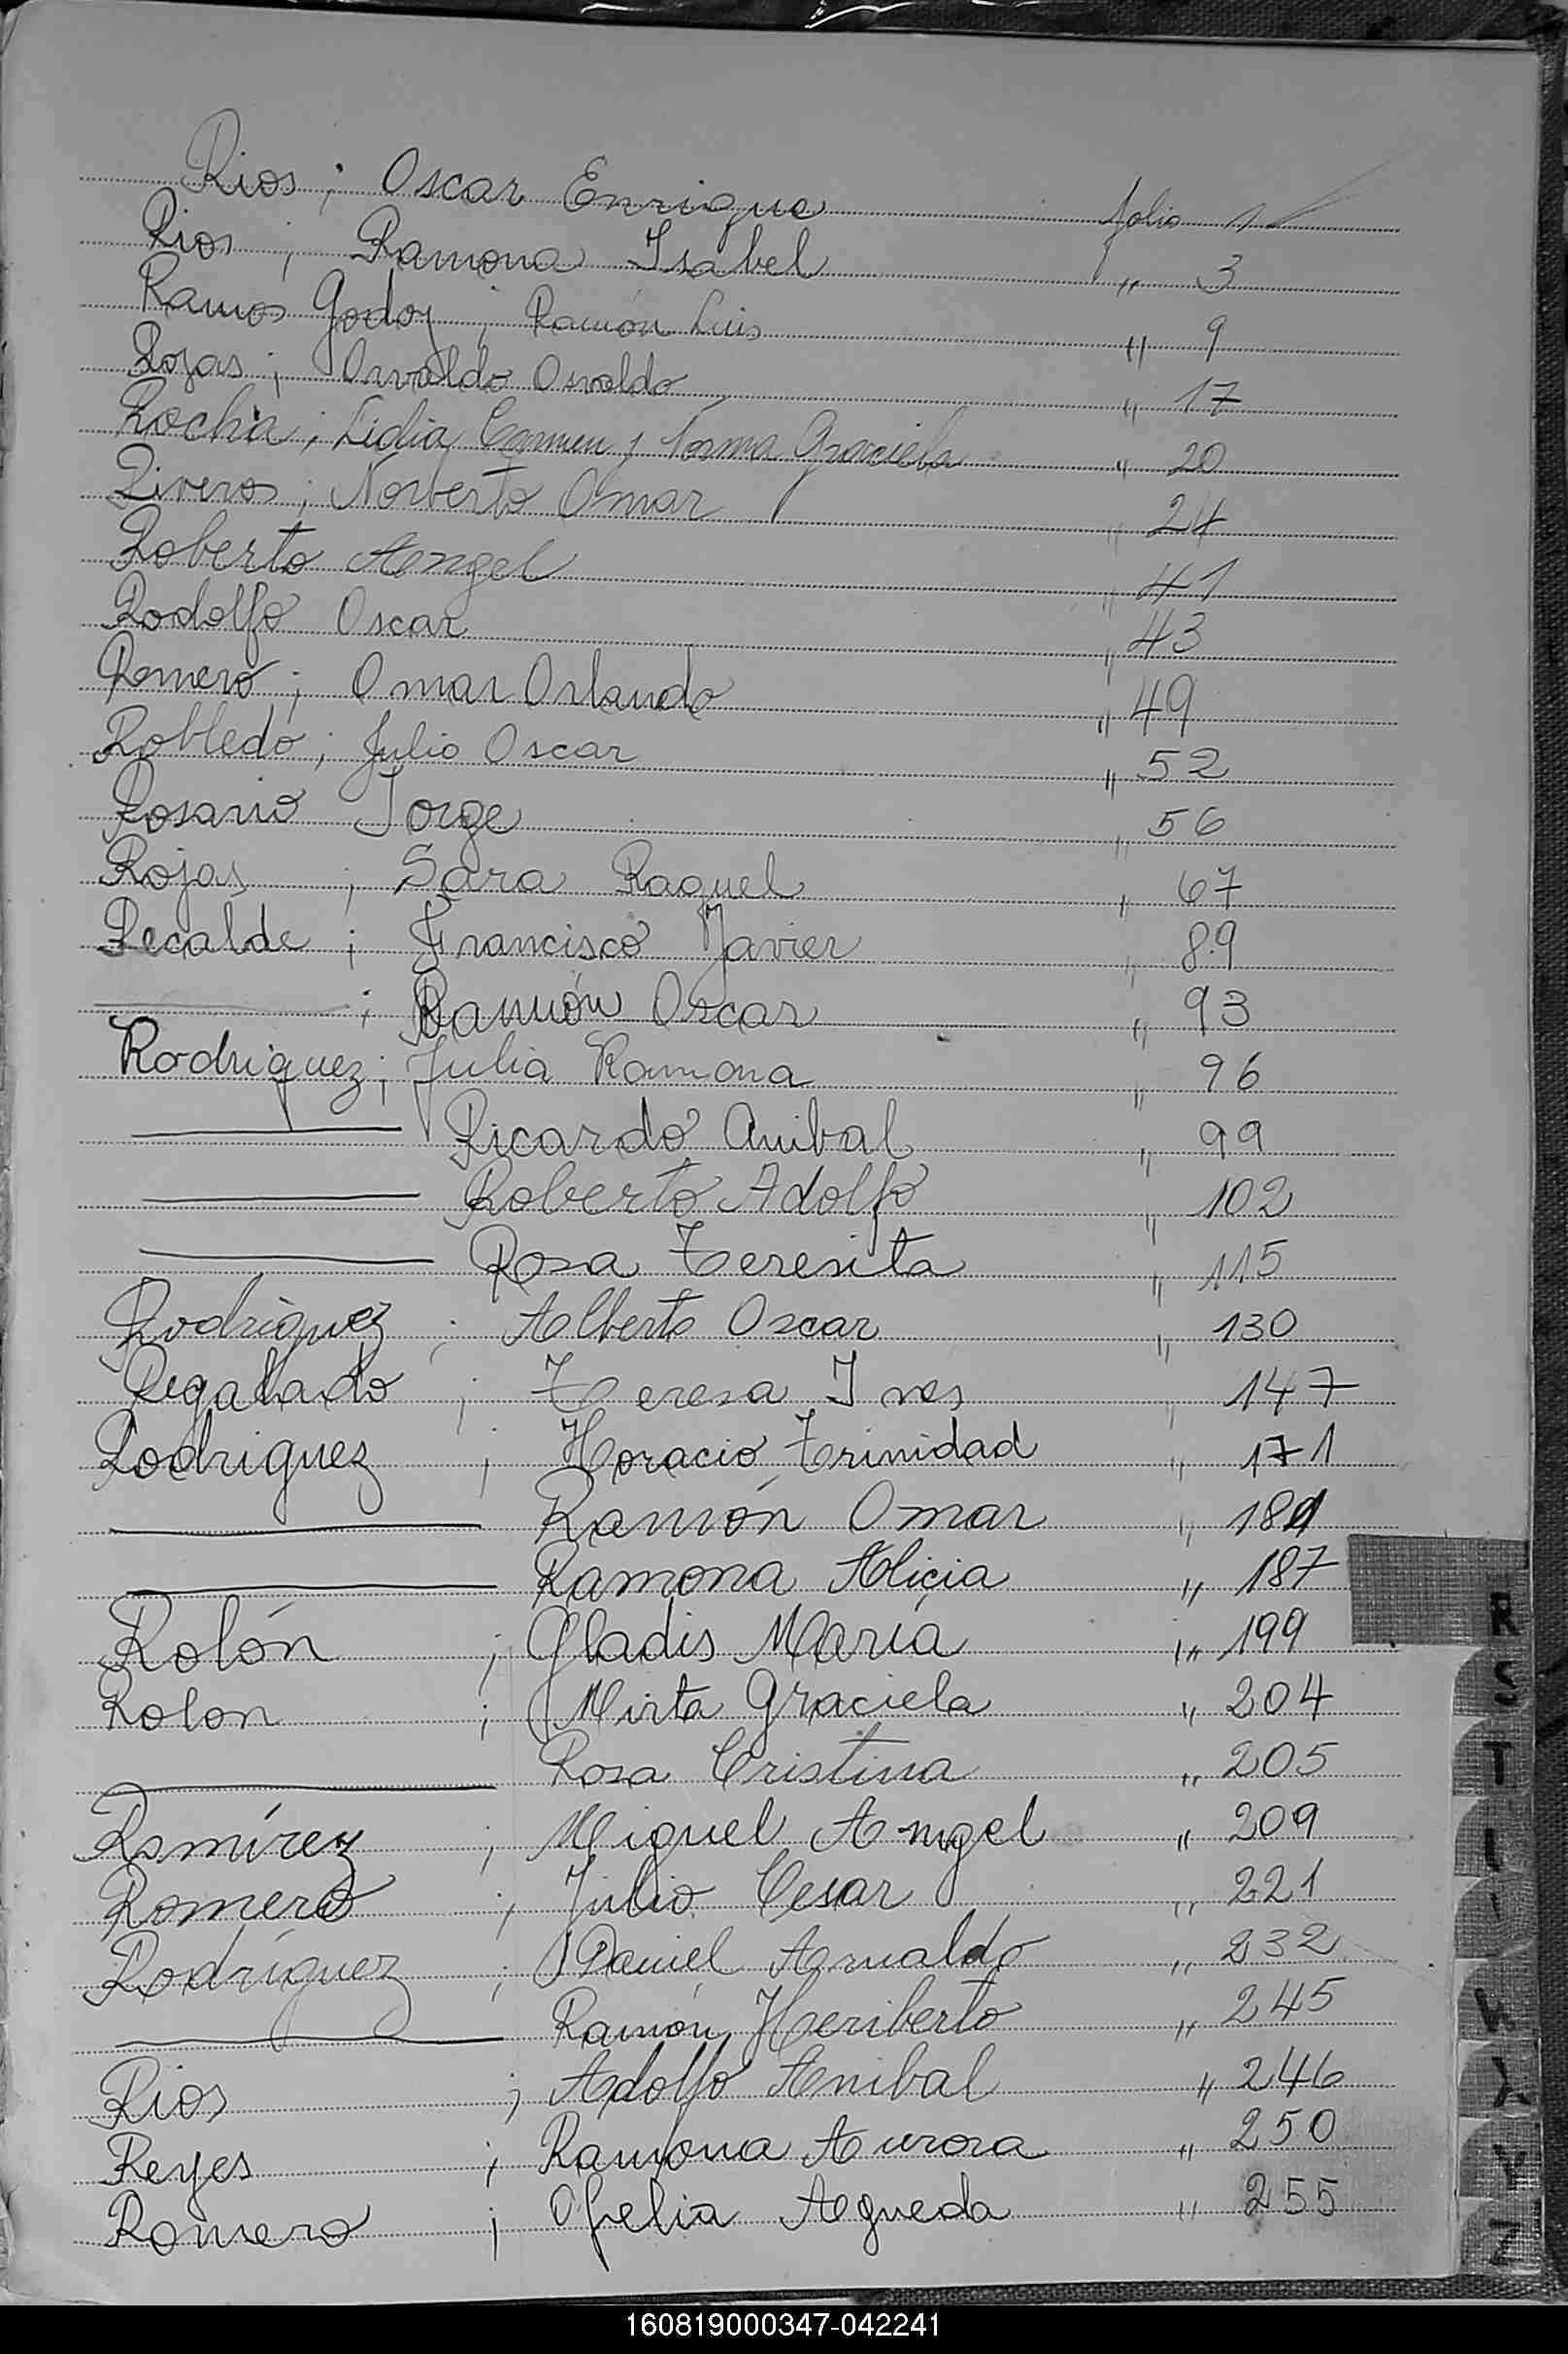 Rios ; Oscar Enrique folio 1
Rios ; Ramona Isabel " 3
Ramos Godoy ; Ramón Luis " 9
Rojas ; Osvaldo Osvaldo " 17
Rocha ; Lidia Carmen y Norma Graciela " 20
Riveros ; Norberto Omar " 24
Roberto Angel " 41
Rodolfo Oscar " 43
Romero ; Omar Orlando " 49
Robledo ; Julio Oscar " 52
Rosario Jorge " 56
Rojas ; Sara Raquel " 67
Recalde ; Francisco Javier " 89
——— ; Ramón Oscar " 93
Rodriguez ; Julia Ramona " 96
——— Ricardo Anibal " 99
——— Roberto Adolfo " 102
——— Rosa Teresita " 115
Rodriguez ; Alberto Oscar " 130
Regalado ; Teresa Ines " 147
Rodriguez ; Horacio Trinidad " 171
——— Ramón Omar " 181
——— Ramona Alicia " 187
Rolón ; Gladis María " 199
Rolon ; Mirta Graciela " 204
——— Rosa Cristina " 205
Ramírez ; Miguel Angel " 209
Romero ; Julio Cesar " 221
Rodríguez ; Daniel Arnaldo " 232
——— Ramón Heriberto " 245
Rios ; Adolfo Anibal " 246
Reyes ; Ramona Aurora " 250
Romero ; Ofelia Agueda " 255
R
S
T
Y
Z
160819000347-042241